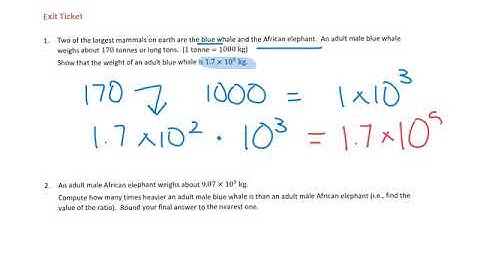 Exit Ticket
1. Two of the largest mammals on earth are the blue whale and the African elephant. An adult male blue whale
weighs about 170 tonnes or long tons. (1 tonne = 1000 kg)
Show that the weight of an adult blue whale is 1.7 × 10⁵ kg.
170 1000 = 1×10³
1.7×10² · 10³ = 1.7×10⁵
2. An adult male African elephant weighs about 9.07 × 10³ kg.
Compute how many times heavier an adult male blue whale is than an adult male African elephant (i.e., find the
value of the ratio). Round your final answer to the nearest one.